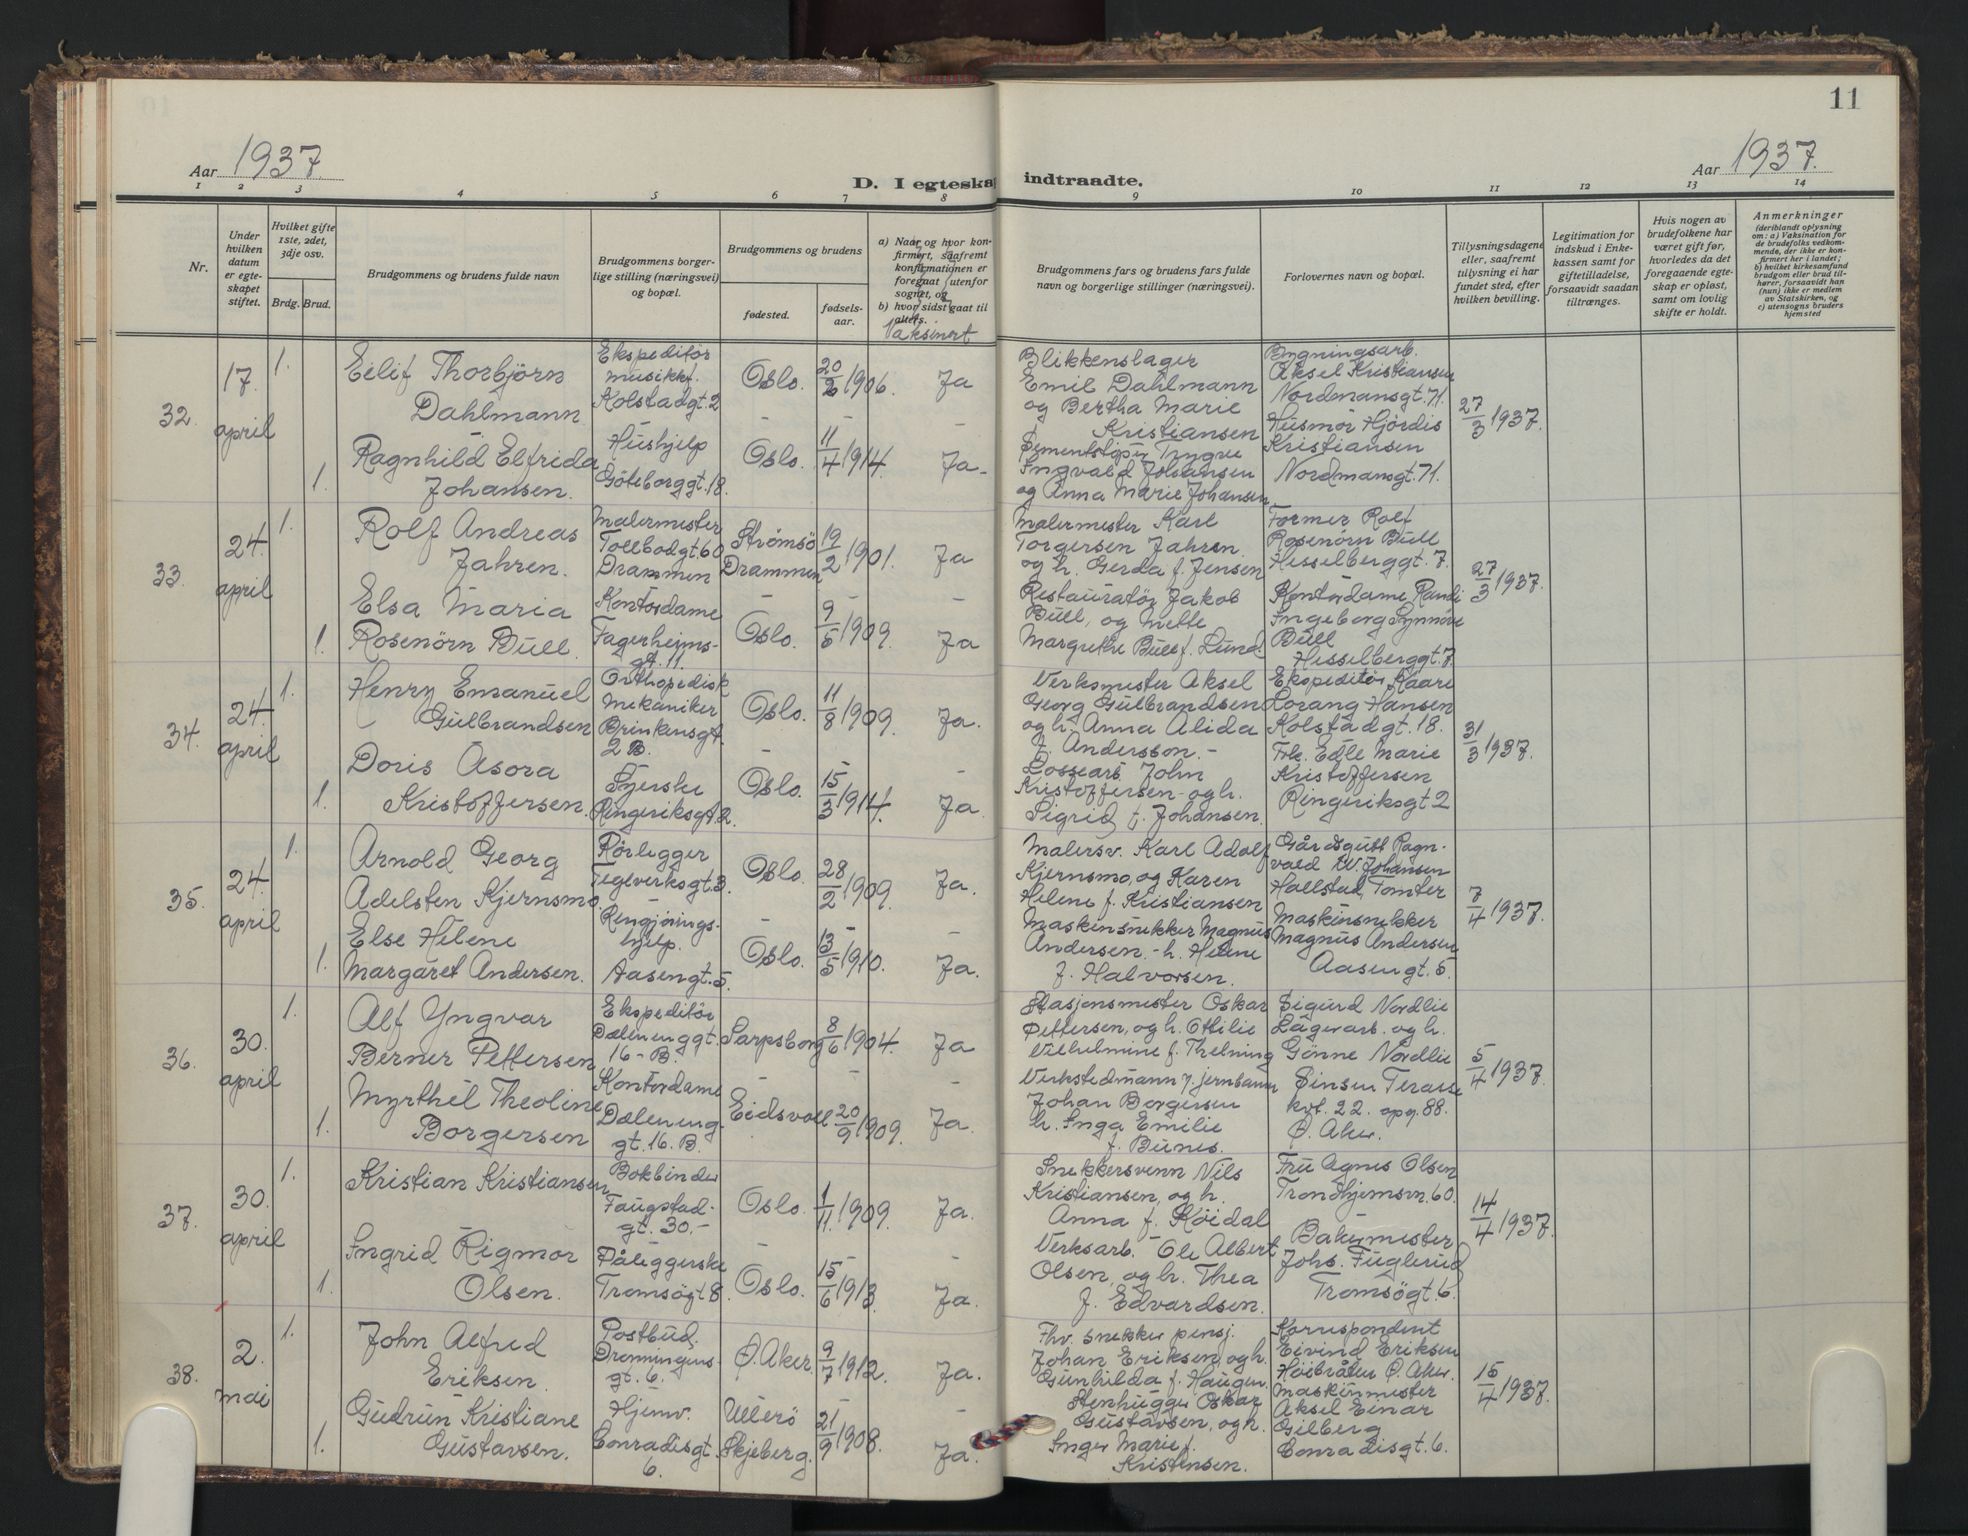 11
Aar 1937.
Aar 1937.
D. I egteska
indtraadte.
1 2 3 4 5 6 7 8 9 10 11 12 13 14
Nr.
Under hvilken datum er egteskapet stiftet.
Hvilket gifte 1ste, 2det, 3dje osv.
Brdg. Brud.
Brudgommens og brudens fulde navn
Brudgommens borgerlige stilling (næringsvei) og bopæl.
Brudgommens og brudens
fødested.
fødselsaar.
a) Naar og hvor konfirmert, saafremt konfirmationen er foregaat utenfor sognet, og
b) hvor sidst gaat til alters.
Vaksinert
Brudgommens fars og brudens fars fulde navn og borgerlige stillinger (næringsvei).
Forlovernes navn og bopæl.
Tillysningsdagene eller, saafremt tillysning ei har fundet sted, efter hvilken bevilling.
Legitimation for indskud i Enkekassen samt for giftetilladelse, forsaavidt saadan tiltrænges.
Hvis nogen av brudefolkene har været gift før, hvorledes da det foregaaende egteskap er opløst, samt om lovlig skifte er holdt.
Anmerkninger
(deriblandt oplysning om: a) Vaksination for de brudefolks vedkommende, der ikke er konfirmert her i landet; b) hvilket kirkesamfund brudgom eller brud tilhører, forsaavidt han (hun) ikke er medlem av Statskirken, og c) utensogns bruders hjemsted
32.
17. april
1.
Eilif Thorbjörn
Dahlmann
Ekspeditör
musikkf.
Kolstadgt. 2
Oslo.
20/2 1906.
Ja
Blikkenslager
Emil Dahlmann
og Bertha Marie
Kristiansen
Bygningsarb.
Aksel Kristiansen
Nordmansgt. 71.
27/3 1937.
1.
Ragnhild Elfrida
Johansen.
Hushjelp
Göteborggt. 18.
Oslo.
11/4 1914
Ja-
Sementstöper Trygve
Ingvald Johansen
og Anna Marie Johansen
Husmor Hjördis
Kristiansen
Nordmansgt. 71.
33.
24. april
1.
Rolf Andreas
Jahren.
Malermester
Tollbodgt. 60
Drammen
Strömsö
Drammen
19/2 1901.
Ja
Malermester Karl
Torgersen Jahren
og h. Gerda f. Jensen
Former Rolf
Rosenörn Bull
Hesselberggt. 7.
27/3 1937.
1.
Elsa Maria
Rosenörn Bull.
Kontordame
Fagerheims-
gt. 11.
Oslo.
9/5 1909.
Ja
Restauratör Jakob
Bull, og Mette
Margrethe Bull f. Lund
Kontordame Randi
Ingeborg Synnöve
Bull
Hesselberggt. 7.
34.
24. april
1.
Henry Emanuel
Gulbrandsen
Orthopedisk
mekaniker
Brinkensgt.
2 B.
Oslo.
11/8 1909.
Ja.
Verksmester Aksel
Georg Gulbrandsen
og h. Anna Alida
f. Andersson.-
Ekspeditör Kaare
Lorang Hansen
Kolstadgt. 18.
31/3 1937.
1.
Doris Asora
Kristoffersen.
Syerske
Ringeriksgt. 2.
Oslo.
15/3 1914.
Ja.
Lossearb. John
Kristoffersen - og h.
Sigrid f. Johansen.
Frk. Edle Marie
Kristoffersen
Ringeriksgt 2
35.
24. april
1.
Arnold Georg
Adelsten Kjernsmo
Rörlegger
Teglverksgt. 3.
Oslo.
28/2 1909.
Ja.
Malersv. Karl Adolf
Kjernsmo, og Karen
Helene f. Kristiansen
Gårdsgutt Ragn-
vald W. Johansen
Hallstad, Tomter
7/4 1937.
1.
Else Helene
Margaret Andersen.
Rengjörings-
hjelp.
Aasengt. 5.
Oslo.
13/5 1910.
Ja.
Maskinsnekker Magnus
Andersen. - h. Helene
f. Halvorsen.
Maskinsnekker
Magnus Andersen
Aasengt. 5.
36.
30. april
1.
Alf Yngvar
Berner Pettersen
Ekspeditör
Dælenenggt.
16-B.
Sarpsborg
8/6 1904.
Ja
Stasjonsmester Oskar
Pettersen, og h. Othilie
Vilhelmine f. Thelning
Sigurd Nordlie
Lagerarb. og h.
Gönne Nordlie
Sinsen Terasse
kvt. 22. opg. 88.
Ö. Aker.
5/4 1937.
1.
Myrthel Theoline
Borgersen
Kontordame
Dæleneng-
gt. 16. B.
Eidsvoll
20/9 1909.
Ja.
Verkstedmann v. jernbanen
Johan Borgersen
h. Inga Emilie
f. Bunes.
37.
30. april
1.
Kristian Kristiansen
Bokbinder
Faugstad-
gt. 30.-
Oslo.
1/11 1909.
Ja.
Snekkersvenn Nils
Kristiansen, og h.
Anna f. Köidal
Fru Agnes Olsen
Trondhjemsvn. 60.
14/4 1937.
1.
Ingrid Rigmor
Olsen.
Påleggerske
Tromsögt 8.
Oslo.
15/6 1913.
Ja.
Verksarb. Ole Albert
Olsen, og h. Thea
f. Edvardsen.
Bakermester
Johs. Fuglerud
Tromsögt. 6.
38.
2. mai
1.
John Alfred
Eriksen.
Postbud.
Dronningens-
gt. 6.
Ö. Aker
9/7 1912.
Ja.
Fhv. snekker pensj.
Johan Eriksen, og h.
Gunhilda f. Haugen
Korrespondent
Eivind Eriksen
Höibråten Ö. Aker.
15/4 1937.
1.
Gudrun Kristiane
Gustavsen.
Hjemv.
Conradisgt.
6.
Ullerö
Skjeberg.
21/9 1908.
Ja.
Stenhugger Oskar
Gustavsen, og h.
Inger Marie f.
Kristensen.
Maskinmester
Aksel Einar
Gilberg
Conradisgt. 6.